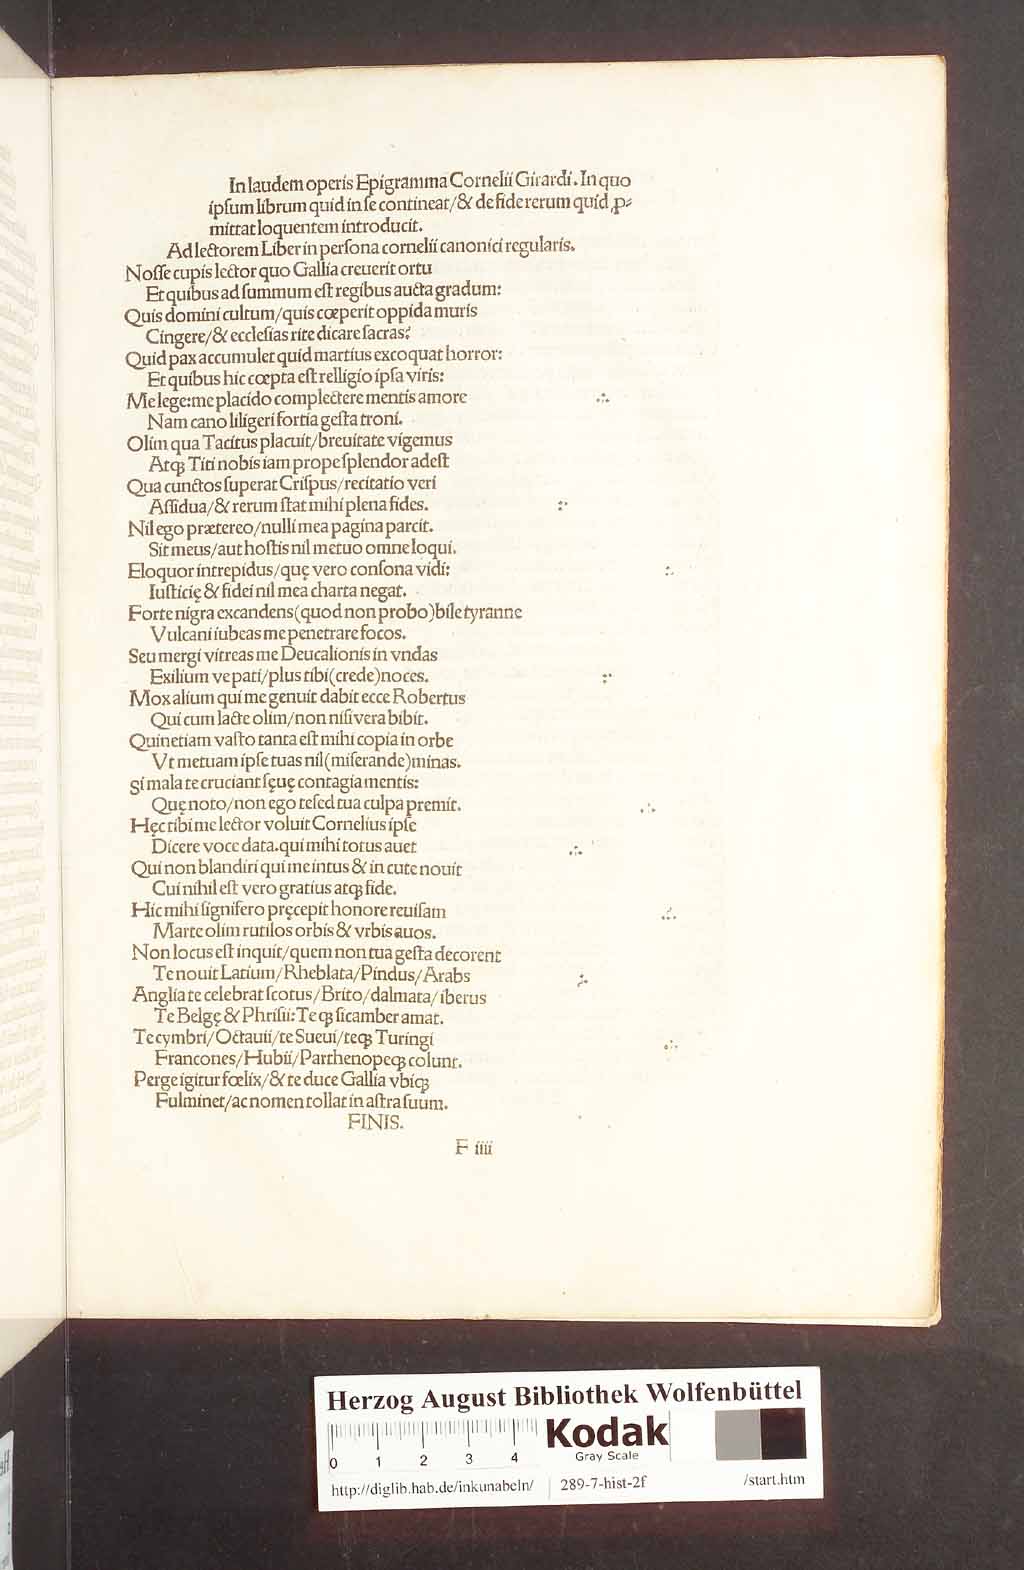 In laudem operis Epigramma Cornelii Girardi. In quo
ipſum librum quid in ſe contineat/& de fide rerum quid ꝓ⸗
mittat loquentem introducit.
Ad lectorem Liber in perſona cornelii canonici regularis.
Noſſe cupis lector quo Gallia creuerit ortu
Et quibus ad ſummum eſt regibus aucta gradum:
Quis domini cultum/quis cœperit oppida muris
Cingere/& eccleſias rite dicare ſacras?
Quid pax accumulet quid martius excoquat horror:
Et quibus hic cœpta eſt relligio ipſa viris:
Me lege: me placido complectere mentis amore
Nam cano liligeri fortia geſta troni.
Olim qua Tacitus placuit/breuitate vigemus
Atqꝫ Titi nobis iam prope ſplendor adeſt
Qua cunctos ſuperat Criſpus/recitatio veri
Aſſidua/& rerum ſtat mihi plena fides.
Nil ego prætereo/nulli mea pagina parcit.
Sit meus/aut hoſtis nil metuo omne loqui.
Eloquor intrepidus/quę vero conſona vidi:
Iuſticię & fidei nil mea charta negat.
Forte nigra excandens(quod non probo)bile tyranne
Vulcani iubeas me penetrare focos.
Seu mergi vitreas me Deucalionis in vndas
Exilium ve pati/plus tibi(crede)noces.
Mox alium qui me genuit dabit ecce Robertus
Qui cum lacte olim/non niſi vera bibit.
Quinetiam vaſto tanta eſt mihi copia in orbe
Vt metuam ipſe tuas nil(miſerande)minas.
Si mala te cruciant ſęuę contagia mentis:
Quę noto/non ego te ſed tua culpa premit.
Hęc tibi me lector voluit Cornelius ipſe
Dicere voce data. qui mihi totus auet
Qui non blandiri qui me intus & in cute nouit
Cui nihil eſt vero gratius atqꝫ fide.
Hic mihi ſignifero pręcepit honore reuiſam
Marte olim rutilos orbis & vrbis auos.
Non locus eſt inquit/quem non tua geſta decorent
Te nouit Latium/Rheblata/Pindus/Arabs
Anglia te celebrat ſcotus/Brito/dalmata/iberus
Te Belgę & Phriſii: Te qꝫ ſicamber amat.
Te cymbri/Octauii/te Sueui/teqꝫ Turingi
Francones/Hubii/Parthenopeqꝫ colunt.
Perge igitur fœlix/& te duce Gallia vbiqꝫ
Fulminet/ac nomen tollat in aſtra ſuum.
FINIS.
F iiii
Herzog August Bibliothek Wolfenbüttel
Kodak
Gray Scale
0 1 2 3 4
http://diglib.hab.de/inkunabeln/ 289-7-hist-2f /start.htm